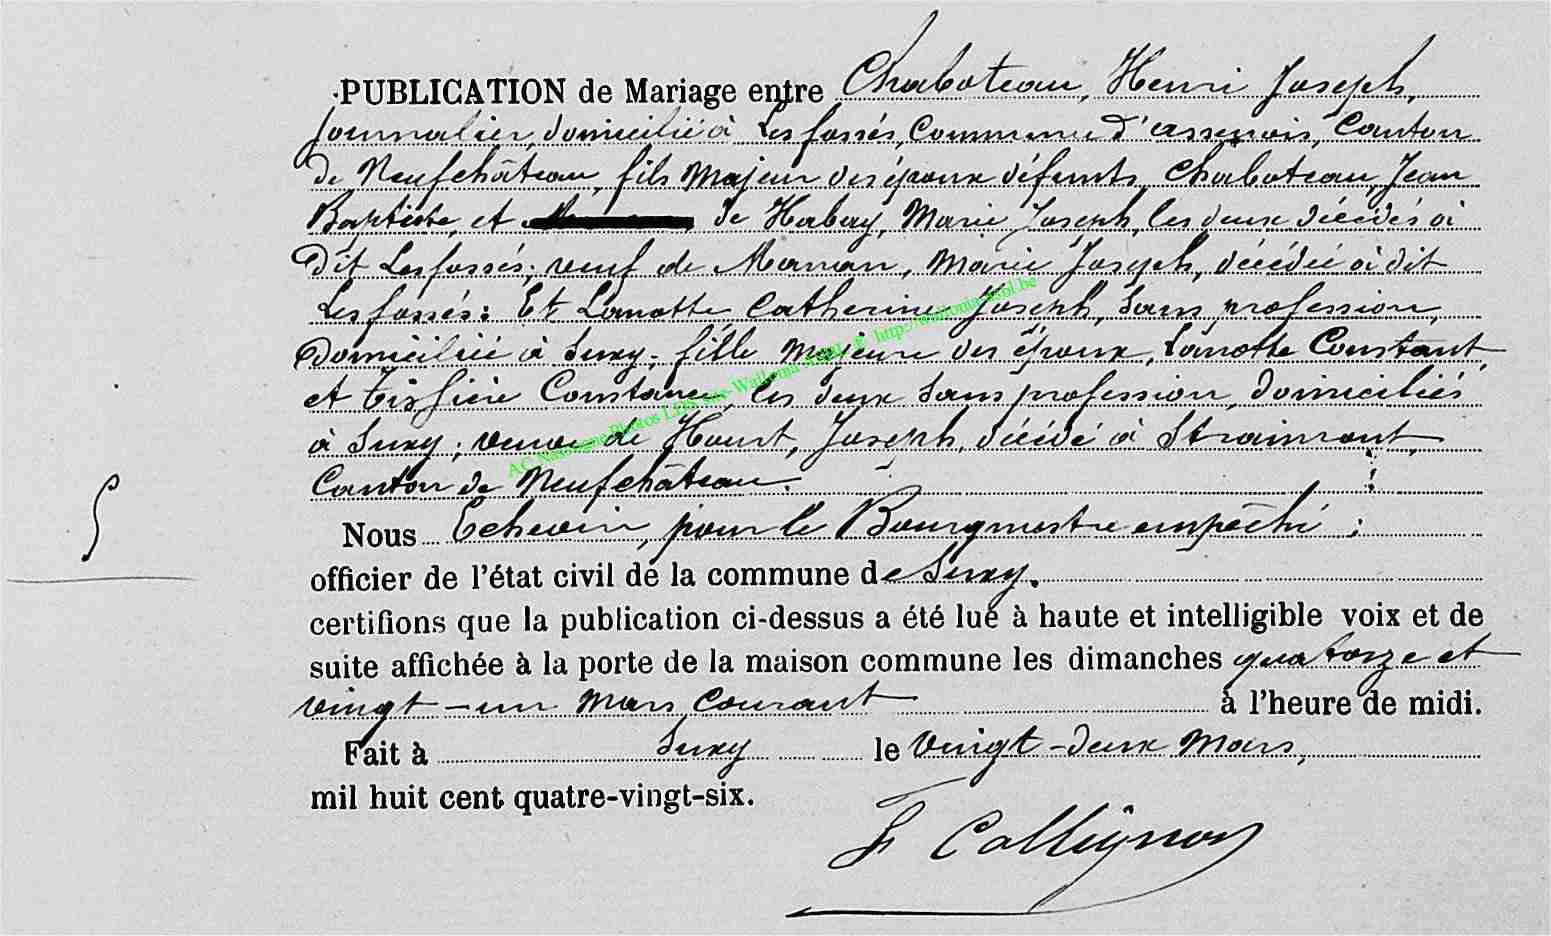 PUBLICATION de Mariage entre Chaboteau, Henri Joseph,
journalier, domicilié à Les fossés, Commune d'assenois, Canton
de Neufchâteau, fils majeur des époux défunts, Chaboteau, Jean
Baptiste, et de Habay, Marie Joseph, les deux décédés à
dit Les fossés; veuf de Manan, Marie Joseph, décédée à dit
Les fossés: Et Lamotte Catherine Joseph, sans profession,
domiciliée à Suxy, fille majeure des époux, Lamotte Constant,
et Constance, les deux sans profession, domiciliés
à Suxy; veuve de Hourt, Joseph, décédé à Straimont,
Canton de Neufchâteau.
5
Nous Echevin, pour le Bourgmestre empêché;
officier de l'état civil de la commune de Suxy.
certifions que la publication ci-dessus a été lue à haute et intelligible voix et de
suite affichée à la porte de la maison commune les dimanches quatorze et
vingt-un Mars courant à l'heure de midi.
Fait à Suxy le vingt-deux Mars,
mil huit cent quatre-vingt-six.
Collignon